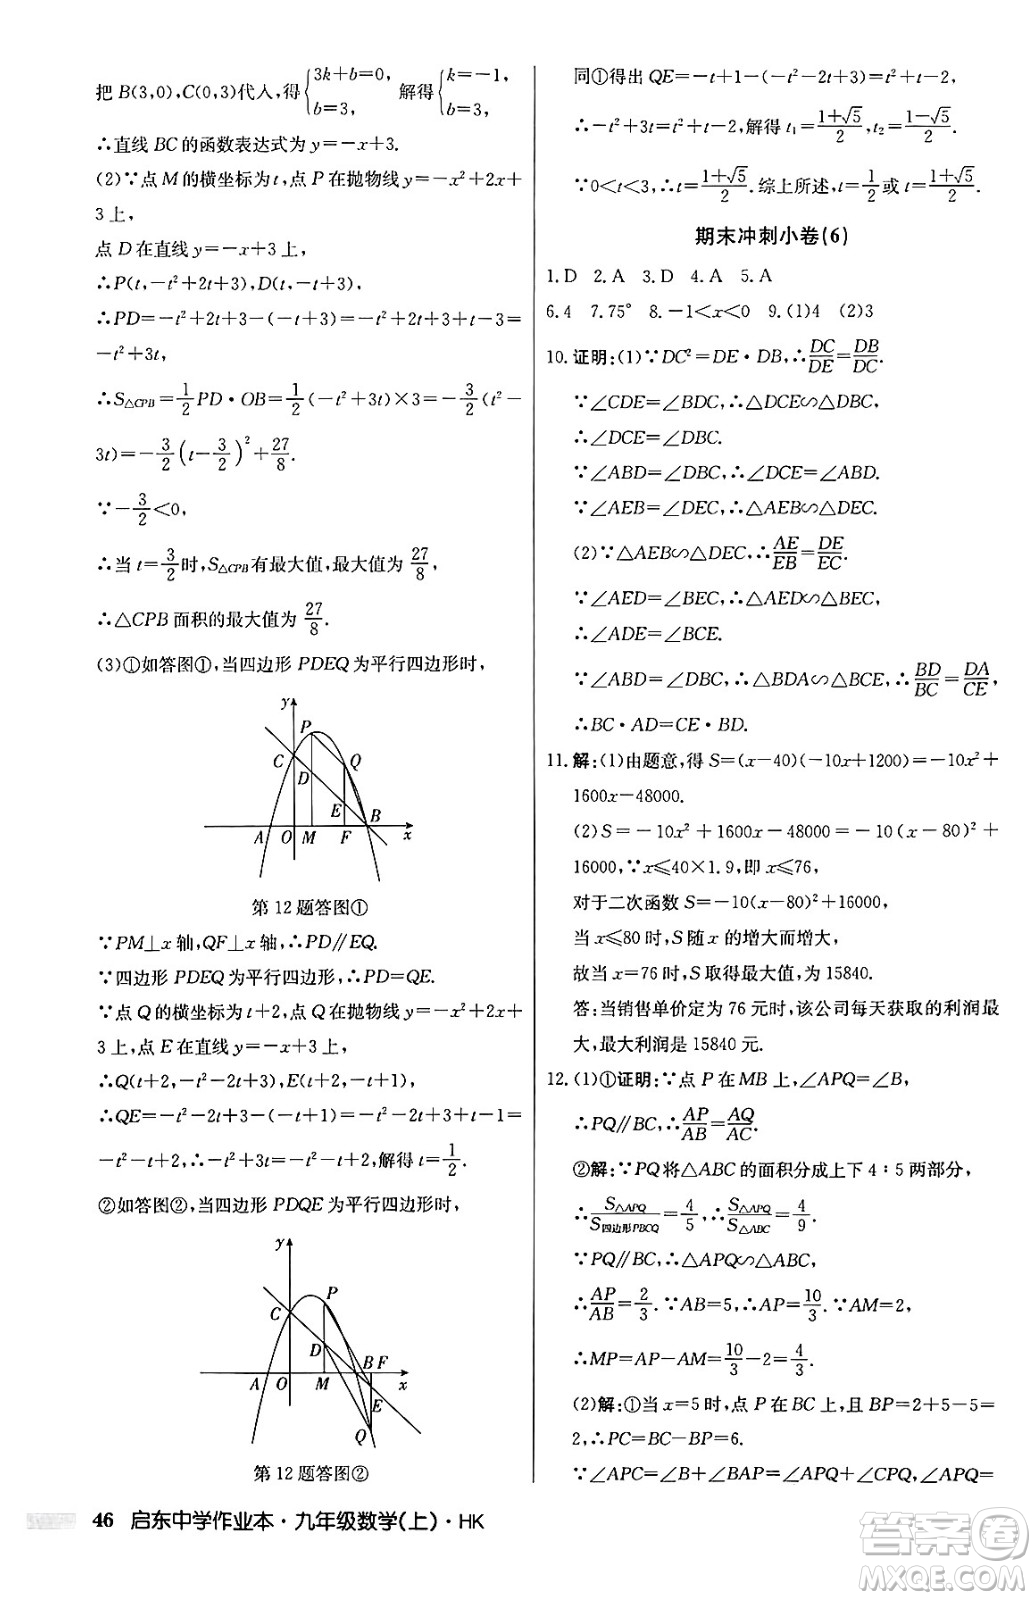 把 B(3,0),C(0,3)代入,得{3k+b=0, b=3, 解得{k=-1, b=3,
∴直线 BC 的函数表达式为 y=-x+3.
(2)∵点 M 的横坐标为 t,点 P 在抛物线 y=-x²+2x+
3 上,
点 D 在直线 y=-x+3 上,
∴P(t,-t²+2t+3),D(t,-t+3),
∴PD=-t²+2t+3-(-t+3)=-t²+2t+3+t-3=
-t²+3t,
∴S△CPB=1/2 PD·OB=1/2(-t²+3t)×3=-3/2(t²-
3t)=-3/2(t-3/2)²+27/8.
∵-3/2<0,
∴当 t=3/2时,S△CPB有最大值,最大值为 27/8,
∴△CPB 面积的最大值为 27/8.
(3)①如答图①,当四边形 PDEQ 为平行四边形时,
y
P
C
Q
D
E
B
A O M F x
第 12 题答图①
∵PM⊥x 轴,QF⊥x 轴,∴PD∥EQ.
∵四边形 PDEQ 为平行四边形,∴PD=QE.
∵点 Q 的横坐标为 t+2,点 Q 在抛物线 y=-x²+2x+
3 上,点 E 在直线 y=-x+3 上,
∴Q(t+2,-t²-2t+3),E(t+2,-t+1),
∴QE=-t²-2t+3-(-t+1)=-t²-2t+3+t-1=
-t²-t+2,∴-t²+3t=-t²-t+2,解得 t=1/2.
②如答图②,当四边形 PDQE 为平行四边形时,
y
P
C
D
B F
A O M x
E
Q
第 12 题答图②
46 启东中学作业本·九年级数学(上)·HK
同①得出 QE=-t+1-(-t²-2t+3)=t²+t-2,
∴-t²+3t=t²+t-2,解得 t₁=(1+√5)/2,t₂=(1-√5)/2.
∵0<t<3,∴t=(1+√5)/2.综上所述,t=1/2或 t=(1+√5)/2.
期末冲刺小卷(6)
1.D 2.A 3.D 4.A 5.A
6.4 7.75° 8.-1<x<0 9.(1)4 (2)3
10.证明:(1)∵DC²=DE·DB,∴DC/DE=DB/DC.
∵∠CDE=∠BDC,∴△DCE∽△DBC,
∴∠DCE=∠DBC.
∵∠ABD=∠DBC,∴∠DCE=∠ABD.
∵∠AEB=∠DEC,∴△AEB∽△DEC.
(2)∵△AEB∽△DEC,∴AE/EB=DE/EC.
∵∠AED=∠BEC,∴△AED∽△BEC,
∴∠ADE=∠BCE.
∵∠ABD=∠DBC,∴△BDA∽△BCE,∴BD/BC=DA/CE,
∴BC·AD=CE·BD.
11.解:(1)由题意,得 S=(x-40)(-10x+1200)=-10x²+
1600x-48000.
(2)S=-10x²+1600x-48000=-10(x-80)²+
16000,∵x≤40×1.9,即 x≤76,
对于二次函数 S=-10(x-80)²+16000,
当 x≤80 时,S 随 x 的增大而增大,
故当 x=76 时,S 取得最大值,为 15840.
答:当销售单价定为 76 元时,该公司每天获取的利润最
大,最大利润是 15840 元.
12.(1)①证明:∵点 P 在 MB 上,∠APQ=∠B,
∴PQ∥BC,∴AP/AB=AQ/AC.
②解:∵PQ 将△ABC 的面积分成上下 4∶5 两部分,
∴S△APQ/S四边形PBCQ=4/5,∴S△APQ/S△ABC=4/9.
∵PQ∥BC,∴△APQ∽△ABC,
∴AP/AB=2/3.∵AB=5,∴AP=10/3.∵AM=2,
∴MP=AP-AM=10/3-2=4/3.
(2)解:①当 x=5 时,点 P 在 BC 上,且 BP=2+5-5=
2,∴PC=BC-BP=6.
∵∠APC=∠B+∠BAP=∠APQ+∠CPQ,∠APQ=
答案圈
MXQE.COM